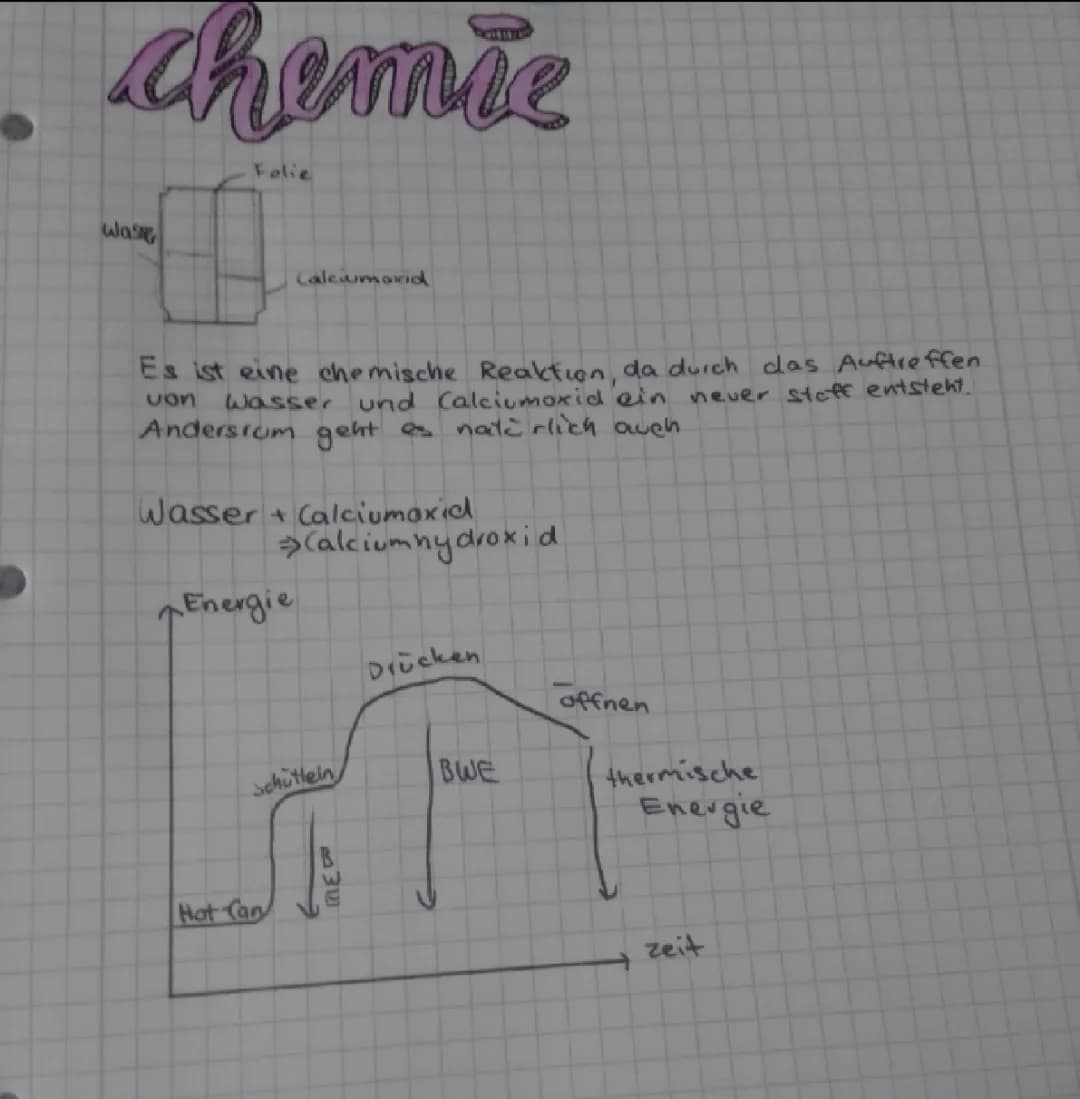 chemie
Folie
Wasser
Calciumoxid
Es ist eine chemische Reaktion, da durch das Auftreffen
von Wasser und Calciumoxid ein neuer stoff entsteht.
Andersrum geht es natürlich auch
Wasser + Calciumoxid
⇒ Calciumhydroxid
Energie
Drücken
öffnen
schütteln
BWE
thermische
Energie
BWE
Hot Can
zeit